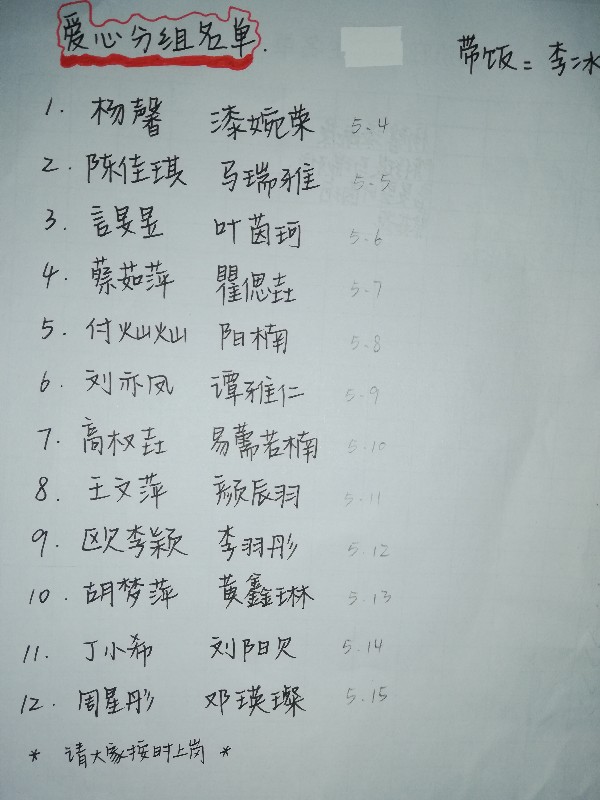 爱心分组名单.
带饭：李冰
1. 杨馨 漆婉荣 5.4
2. 陈佳琪 马瑞雅 5.5
3. 言旻昱 叶茵珂 5.6
4. 蔡茹萍 瞿偲垚 5.7
5. 付灿灿 阳楠 5.8
6. 刘亦凤 谭雅仁 5.9
7. 高权垚 易薷若楠 5.10
8. 王文萍 颜辰羽 5.11
9. 欧李颖 李羽彤 5.12
10. 胡梦萍 黄鑫琳 5.13
11. 丁小希 刘阳欠 5.14
12. 周星彤 邓瑛璨 5.15
* 请大家按时上岗 *